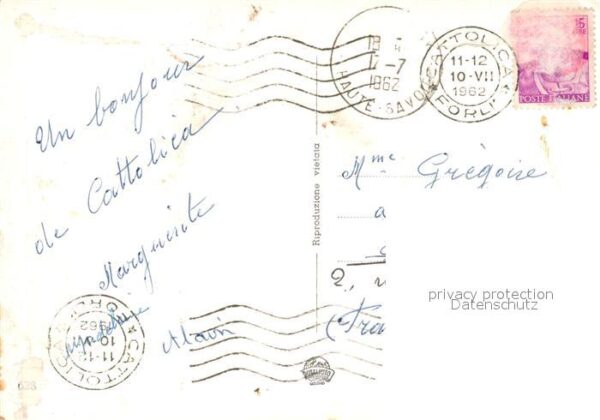 Un bonjour
de Cattolica
Marguerite
Alain
CATTOLICA
11-12
10 VII
1962
FORLI
1962
HAUTE-SAVOIE
15
LIRE
POSTE ITALIANE
Riproduzione vietata
Mme Grégoire
a
2,
privacy protection
Datenschutz
CATTOLICA
11-12
10
1962